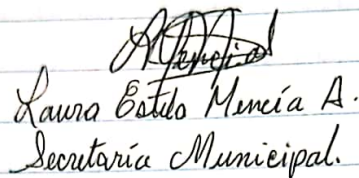 Laura Estela Mencía A.
Secretaria Municipal.